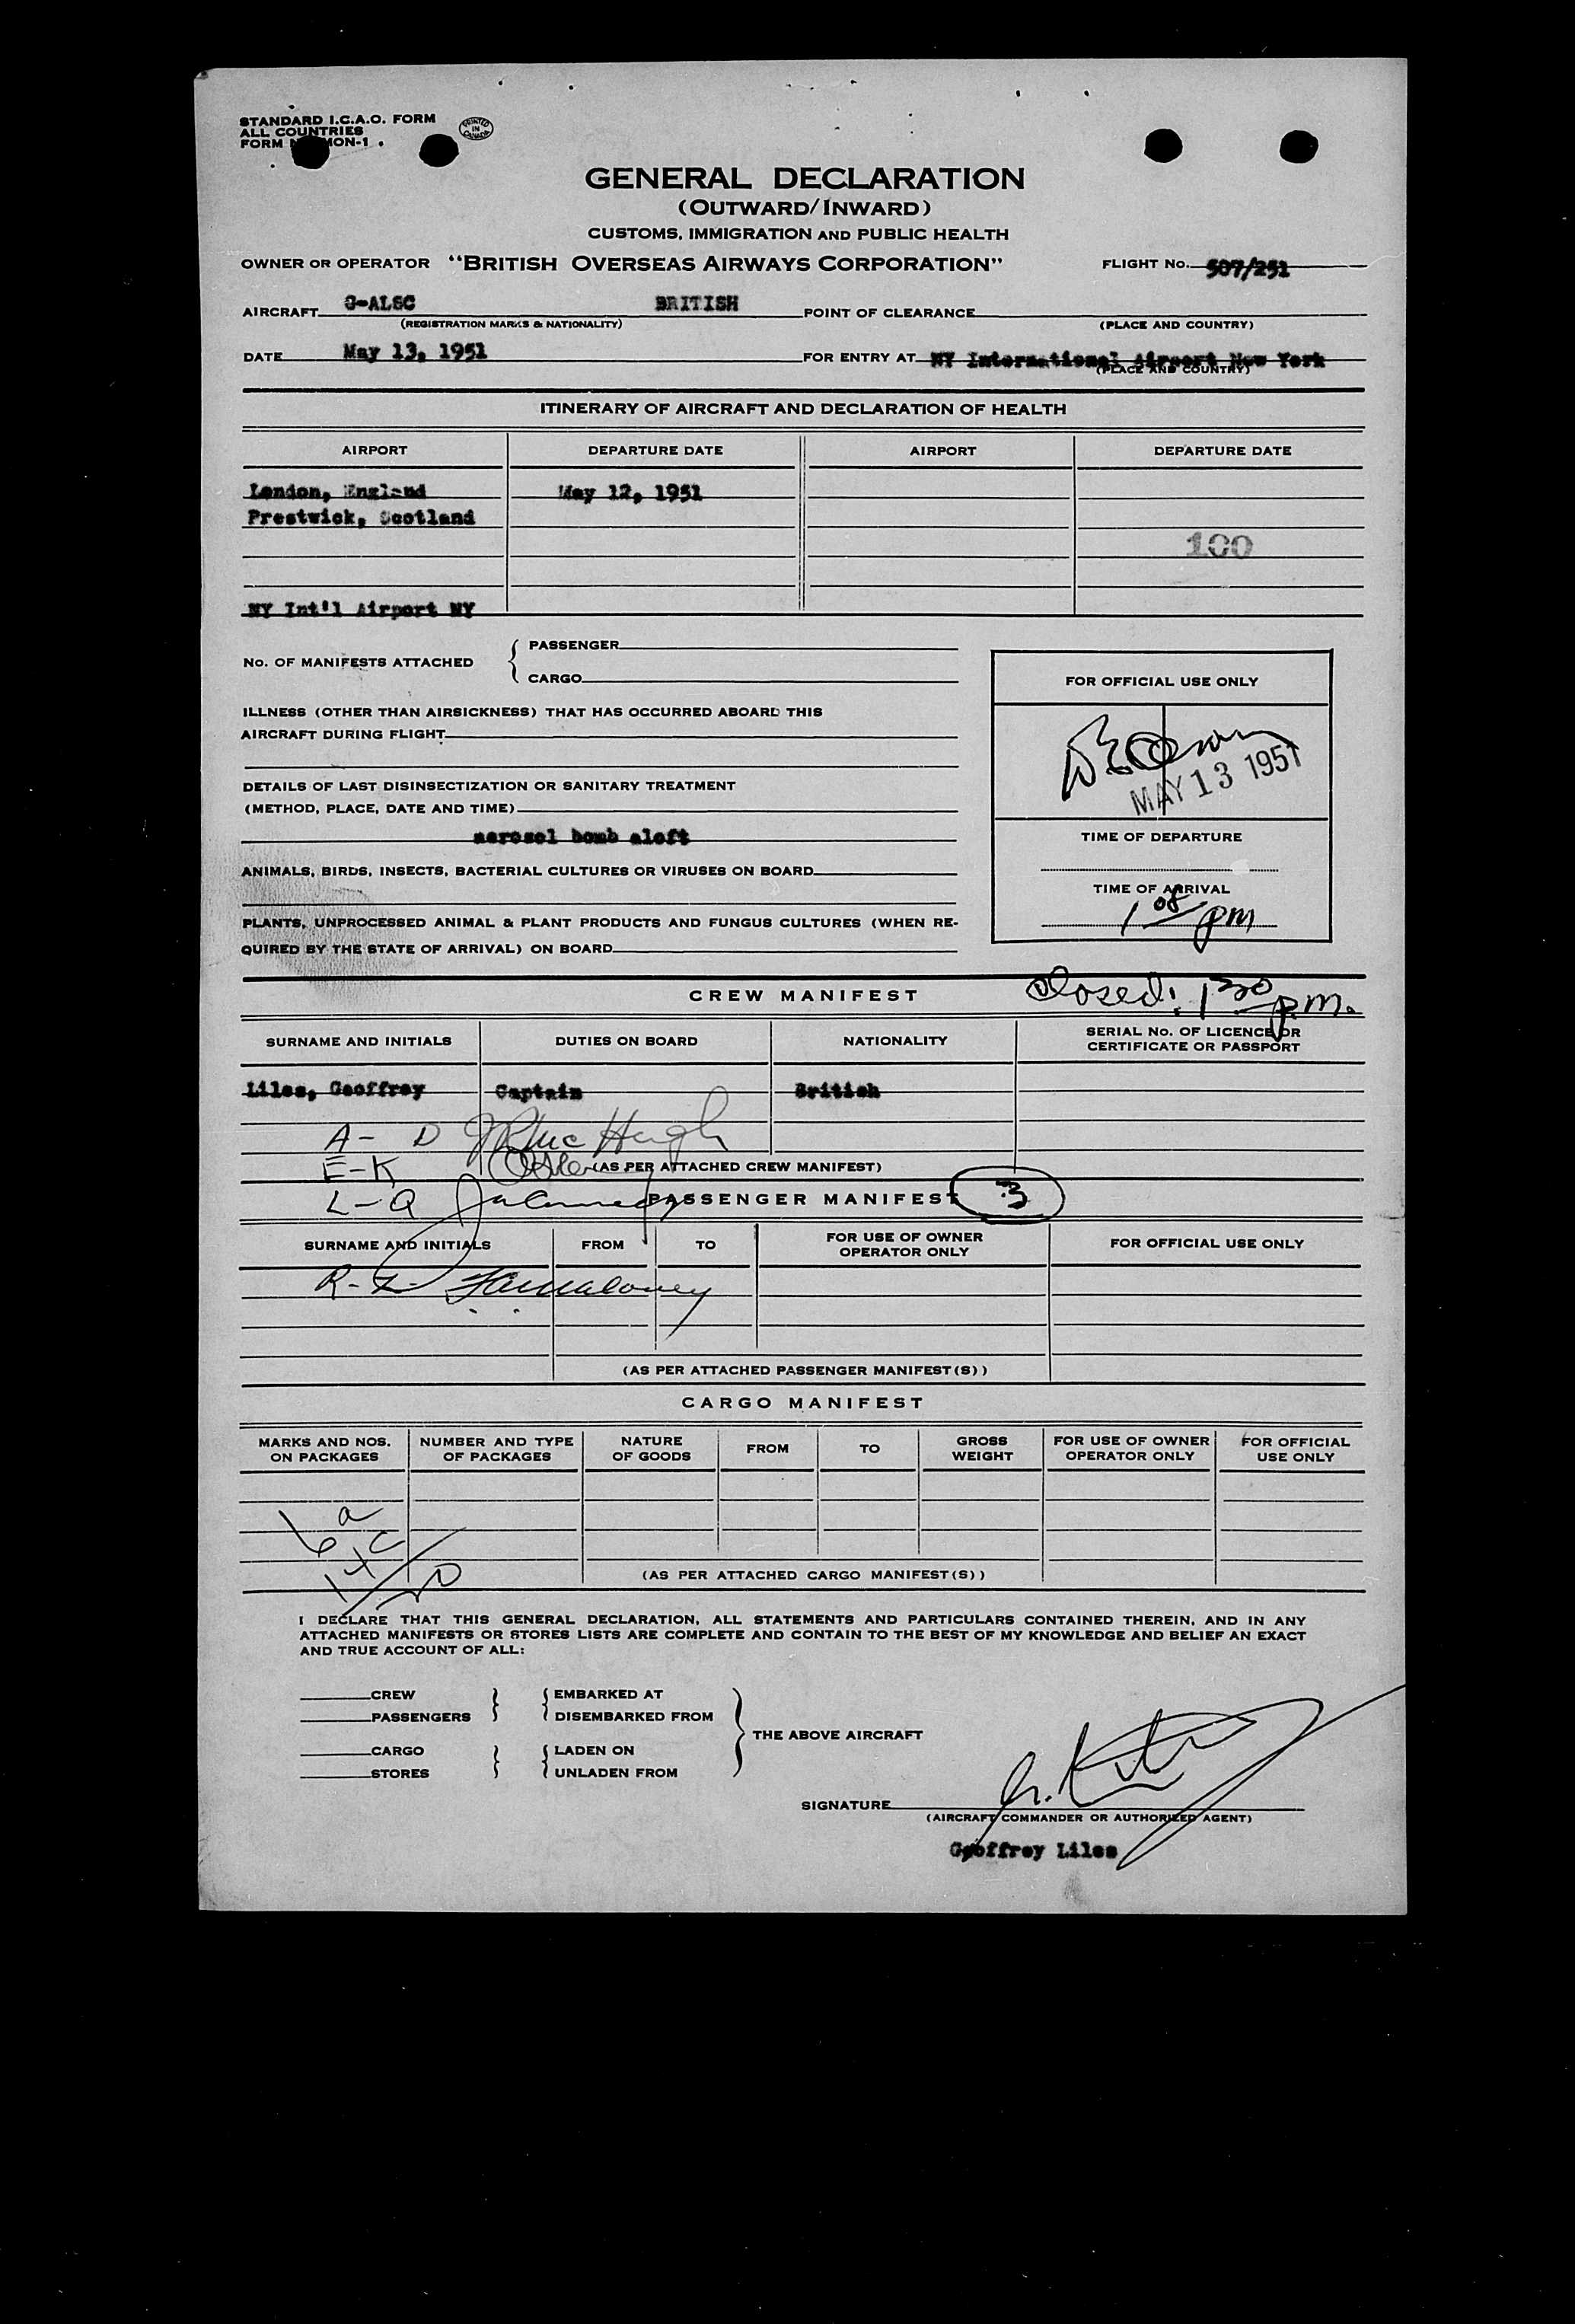 STANDARD I.C.A.O. FORM
ALL COUNTRIES
FORM MON-1
PRINTED IN CANADA
GENERAL DECLARATION
(OUTWARD/INWARD)
CUSTOMS, IMMIGRATION AND PUBLIC HEALTH
OWNER OR OPERATOR "BRITISH OVERSEAS AIRWAYS CORPORATION" FLIGHT No. 507/251
AIRCRAFT G-ALSC BRITISH POINT OF CLEARANCE
(REGISTRATION MARKS & NATIONALITY) (PLACE AND COUNTRY)
DATE May 13, 1951 FOR ENTRY AT NY International Airport New York
(PLACE AND COUNTRY)
ITINERARY OF AIRCRAFT AND DECLARATION OF HEALTH
AIRPORT DEPARTURE DATE AIRPORT DEPARTURE DATE
London, England May 12, 1951
Prestwick, Scotland
100
NY Int'l Airport NY
No. OF MANIFESTS ATTACHED { PASSENGER
CARGO
FOR OFFICIAL USE ONLY
ILLNESS (OTHER THAN AIRSICKNESS) THAT HAS OCCURRED ABOARD THIS
AIRCRAFT DURING FLIGHT
MAY 13 1951
DETAILS OF LAST DISINSECTIZATION OR SANITARY TREATMENT
(METHOD, PLACE, DATE AND TIME)
aerosol bomb aloft
TIME OF DEPARTURE
ANIMALS, BIRDS, INSECTS, BACTERIAL CULTURES OR VIRUSES ON BOARD
TIME OF ARRIVAL
1 08 pm
PLANTS, UNPROCESSED ANIMAL & PLANT PRODUCTS AND FUNGUS CULTURES (WHEN RE-
QUIRED BY THE STATE OF ARRIVAL) ON BOARD
CREW MANIFEST Closed: 1 30 p.m.
SURNAME AND INITIALS DUTIES ON BOARD NATIONALITY SERIAL No. OF LICENCE OR
CERTIFICATE OR PASSPORT
Liles, Geoffrey Captain British
A - D
E-K (AS PER ATTACHED CREW MANIFEST)
L-Q PASSENGER MANIFEST 3
SURNAME AND INITIALS FROM TO FOR USE OF OWNER
OPERATOR ONLY FOR OFFICIAL USE ONLY
R-Z
(AS PER ATTACHED PASSENGER MANIFEST(S))
CARGO MANIFEST
MARKS AND NOS.
ON PACKAGES NUMBER AND TYPE
OF PACKAGES NATURE
OF GOODS FROM TO GROSS
WEIGHT FOR USE OF OWNER
OPERATOR ONLY FOR OFFICIAL
USE ONLY
6 a
14 c
20
(AS PER ATTACHED CARGO MANIFEST(S))
I DECLARE THAT THIS GENERAL DECLARATION, ALL STATEMENTS AND PARTICULARS CONTAINED THEREIN, AND IN ANY
ATTACHED MANIFESTS OR STORES LISTS ARE COMPLETE AND CONTAIN TO THE BEST OF MY KNOWLEDGE AND BELIEF AN EXACT
AND TRUE ACCOUNT OF ALL:
CREW } { EMBARKED AT
PASSENGERS DISEMBARKED FROM
} THE ABOVE AIRCRAFT
CARGO } { LADEN ON
STORES UNLADEN FROM
SIGNATURE
(AIRCRAFT COMMANDER OR AUTHORIZED AGENT)
Geoffrey Liles